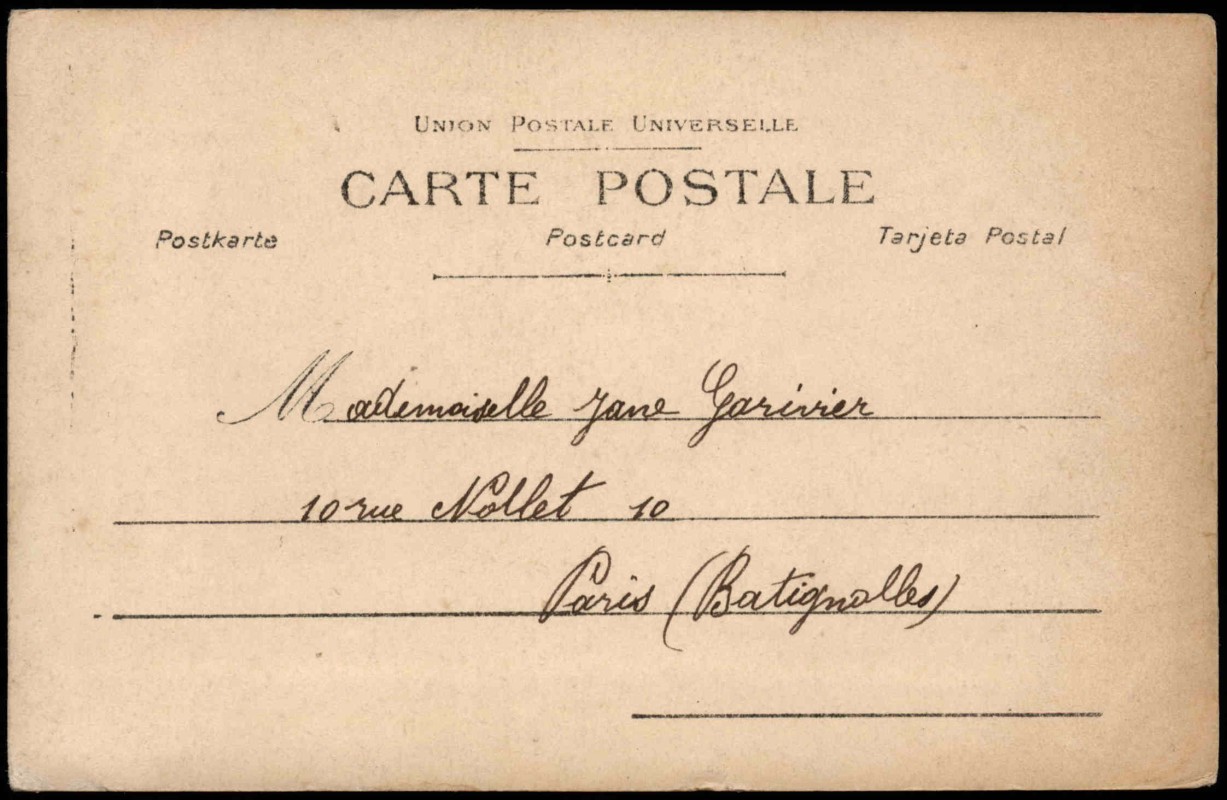 UNION POSTALE UNIVERSELLE
CARTE POSTALE
Postkarte Postcard Tarjeta Postal
Mademoiselle Jane Garivier
10 rue Nollet 10
Paris (Batignolles)